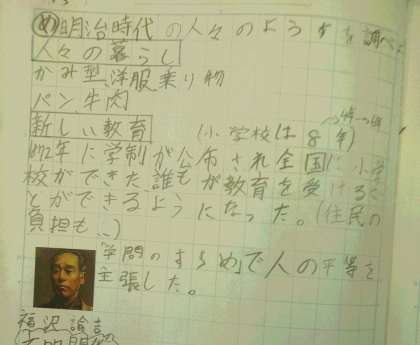 め 明治時代の人々のようすを調べ
人々の暮らし
かみ型、洋服、乗り物
パン、牛肉
新しい教育 (小学校は8年)
1872年に学制が公布され全国に小学
校ができた誰もが教育を受けるこ
とができるようになった。(住民の
負担も、、)
「学問のすすめ」で人の平等を
主張した。
福沢諭吉